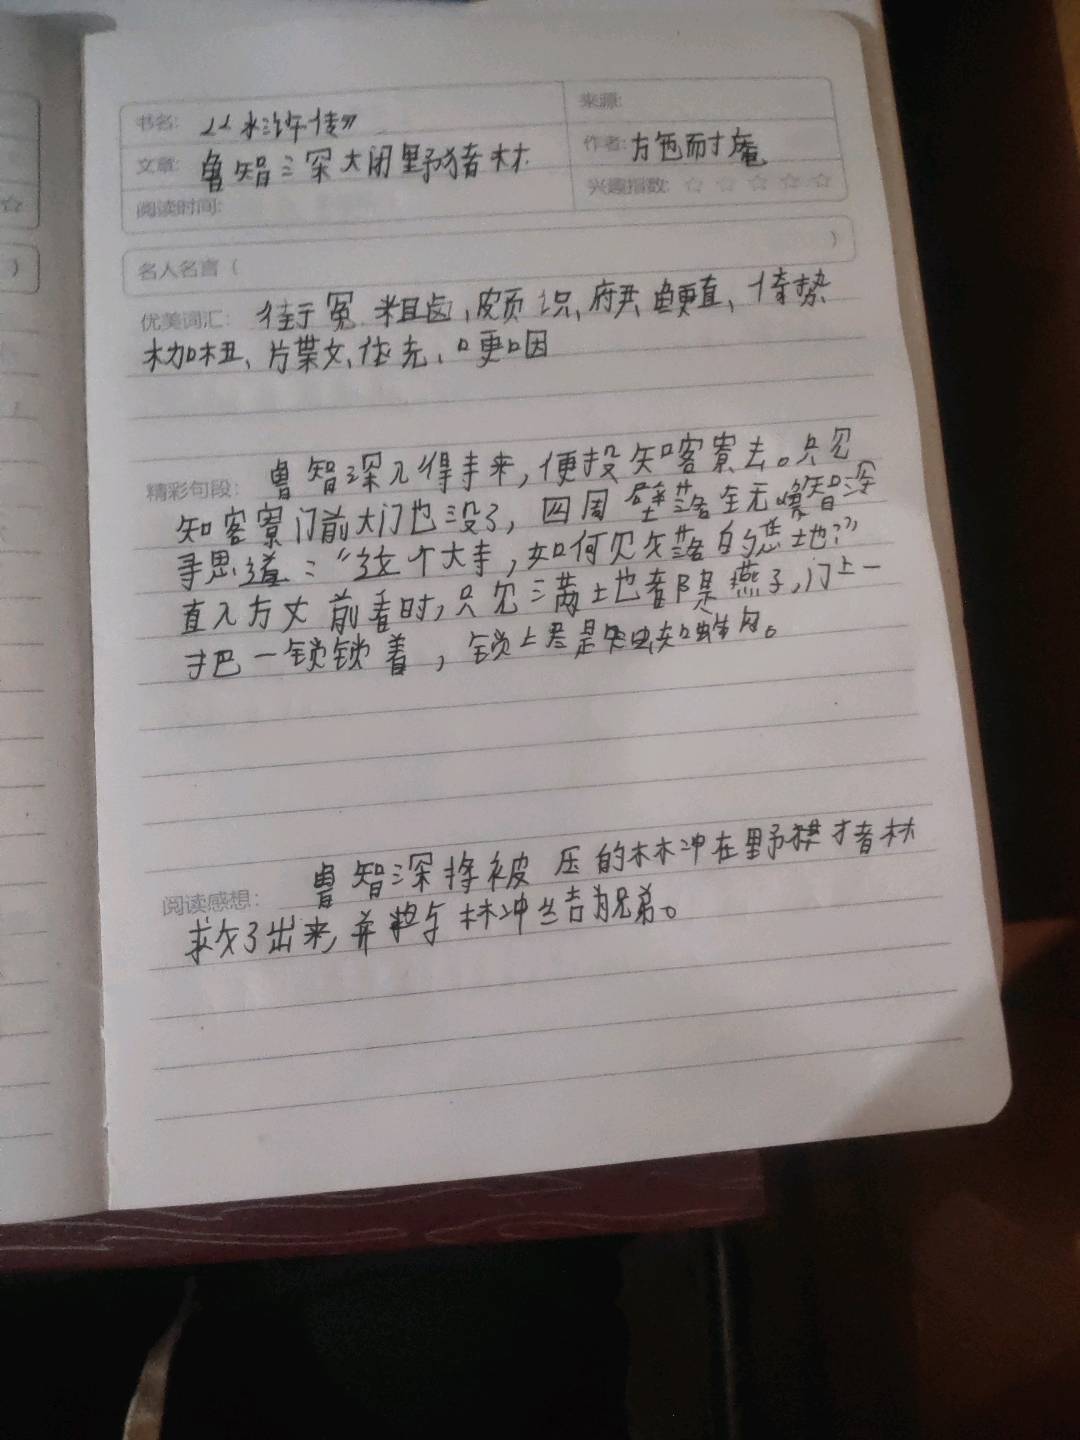 书名: 《水浒传》
来源:
文章: 鲁智深大闹野猪林
作者: 施耐庵
阅读时间:
兴趣指数: ☆ ☆ ☆ ☆ ☆
名人名言（ ）
优美词汇: 冤 粗卤、 识、府尹、鲠直、倚势
枷杻、叶文、依先、哽咽
精彩句段: 鲁智深入得寺来，便投知客寮去。只见
知客寮门前大门也没了，四周壁落全无。智深
寻思道：“这个大寺，如何败落的恁地？”
直入方丈前看时，只见满地都是燕子，门上一
把一锁锁着，锁上尽是蜘蛛网。
阅读感想: 鲁智深将被压的林冲在野猪林
救了出来，并与林冲结为兄弟。